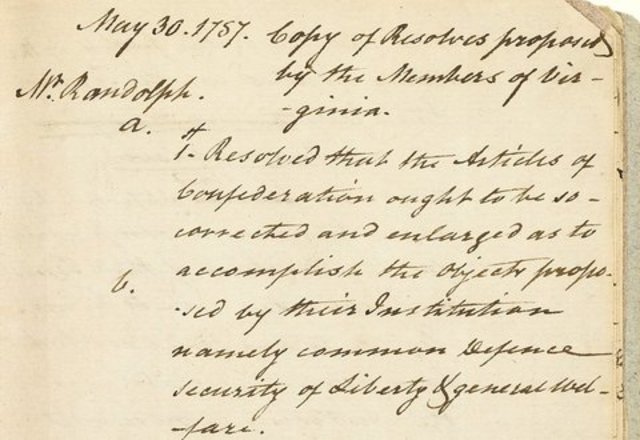 May 30. 1787. Copy of Resolves proposed
by the Members of Vir-
-ginia.
Mr. Randolph.
a.
1st. Resolved that the Articles of
Confederation ought to be so-
corrected and enlarged as to
accomplish the Objects propo-
b.
-sed by their Institution
namely common Defence
security of Liberty & general Wel-
-fare.